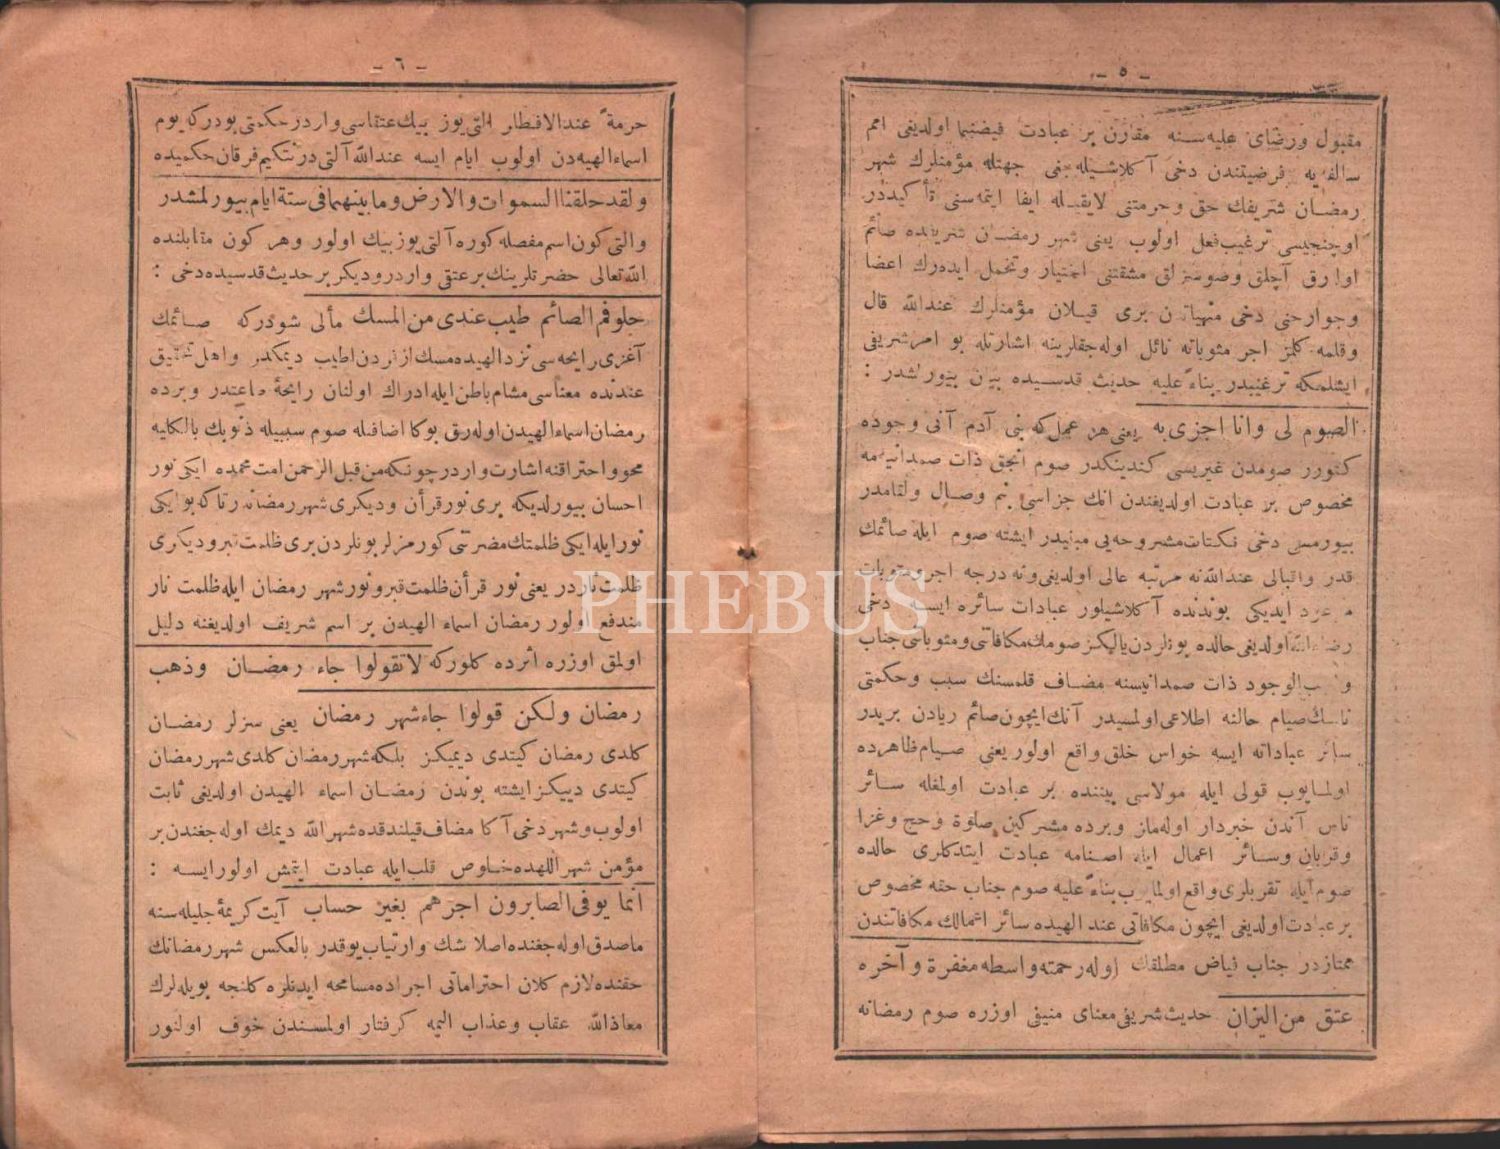 - ٥ -
مقبول ورضاى عليه سنه مقارن بر عبادت فيضنما اولديغى امم
سالفه يه فرضيتندن دخى آكلاشيلمغى جهتله مؤمنلرك شهر
رمضان شريفك حق وحرمتنى لايقيله ايفا ايتمه سنى تأكيددر
اوچنجيسى ترغيب فعل اولوب يعنى شهر رمضان شريفده صائم
اوله رق آچلق وصوسزلق مشقتنى اختيار وتحمل ايده رك اعضا
وجوارحنى دخى منهياتدن برى قيلان مؤمنلرك عندالله قال
وقلمه كلمز اجر مثوباته نائل اوله جقلرينه اشارتله بو امر شريفى
ايشلمكه ترغيبدر بناءً عليه حديث قدسيده بيان بيورلشدر :
الصوم لى وانا اجزى به يعنى هر عمل كه بنى آدم آنى وجوده
كتورر صومدن غيريسى كندينكدر صوم انجق ذات صمدانيه مه
مخصوص بر عبادت اولديغندن انك جزاسى بنم وصال ولقامدر
بيورمسى دخى نكتات مشروحه يى مبنيدر ايشته صوم ايله صائمك
قدر واقبالى عندالله نه مرتبه عالى اولديغى ونه درجه اجر ومثوبات
ايديكى بوندنده آكلاشيلور عبادات سائره ايسه دخى
اولديغى حالده بونلردن يالكز صومك مكافاتى ومثوباتى جناب
واجب الوجود ذات صمدانيسنه مضاف قلمسنك سبب وحكمتى
ناسك صيام حالنه اطلاعى اولمسيدر آنك ايچون صائم ريادن بريدر
سائر عباداته ايسه خواس خلق واقع اولور يعنى صيام ظاهرده
اولمايوب قولى ايله مولاسى بيننده بر عبادت اولمغله سائر
ناس آندن خبردار اوله ماز وبرده مشركين صلوة وحج وغزا
وقربان وسائر اعمال ايله اصنامه عبادت ايتدكلرى حالده
صوم ايله تقربلرى واقع اولمايوب بناءً عليه صوم جناب حقه مخصوص
بر عبادت اولديغى ايچون مكافاتى عند الهيده سائر اعمالك مكافاتندن
ممتازدر جناب فياض مطلقك اوله رحمته واسطه مغفرة و آخره
عتق من النيران حديث شريفى معناى منيفى اوزره صوم رمضانه
- ٦ -
حرمةً عندالافطار التى يوز بيك عتقاسى واردر حكمتى بودركه يوم
اسماء الهيه دن اولوب ايام ايسه عندالله آلتى در نتكيم فرقان حكميده
ولقد خلقنا السموات والارض وما بينهما فى ستة ايام بيورلمشدر
والتى كون اسم مفصله كوره آلتى يوز بيك اولور وهر كون مقابلنده
الله تعالى حضرتلرينك بر عتقى واردر وديكر بر حديث قدسيده دخى :
خلوفم الصائم طيب عندى من المسك مآلى شودركه صائمك
آغزى رايحه سى نزد الهيده مسك ازفردن اطيب ديمكدر واهل تحقيق
عندنده معناسى مشام باطن ايله ادراك اولنان رايحۀ طاعتدر وبرده
رمضان اسماء الهيدن اوله رق بوكا اضافتله صوم سببيله ذنوبك بالكليه
محو واحتراقنه اشارت واردر چونكه من قبل الرحمن امت محمده ايكى نور
احسان بيورلديكه برى نور قرأن وديكرى شهر رمضاندر تاكه بو ايكى
نور ايله ايكى ظلمتك مضرتنى كورمزلر بونلردن برى ظلمت قبر وديكرى
ظلمت ناردر يعنى نور قرأن ظلمت قبر ونور شهر رمضان ايله ظلمت نار
مندفع اولور رمضان اسماء الهيدن بر اسم شريف اولديغنه دليل
اولمق اوزره اثرده كلوركه لاتقولوا جاء رمضان وذهب
رمضان ولكن قولوا جاء شهر رمضان يعنى سزلر رمضان
كلدى رمضان كيتدى ديميكز بلكه شهر رمضان كلدى شهر رمضان
كيتدى دييكز ايشته بوندن رمضان اسماء الهيدن اولديغى ثابت
اولوب وشهر دخى آكا مضاف قيلندقده شهر الله ديمك اوله جغندن بر
مؤمن شهر اللهده خلوص قلب ايله عبادت ايتمش اولور ايسه :
انما يوفى الصابرون اجرهم بغير حساب آيت كريمۀ جليله سنه
ماصدق اوله جغنده اصلا شك وارتياب يوقدر بالعكس شهر رمضانك
حقنده لازم كلان احتراماتى اجراده مسامحه ايدنلره كلنجه بويله لرك
معاذالله عقاب وعذاب اليمه كرفتار اولمسندن خوف اولنور
PHEBUS